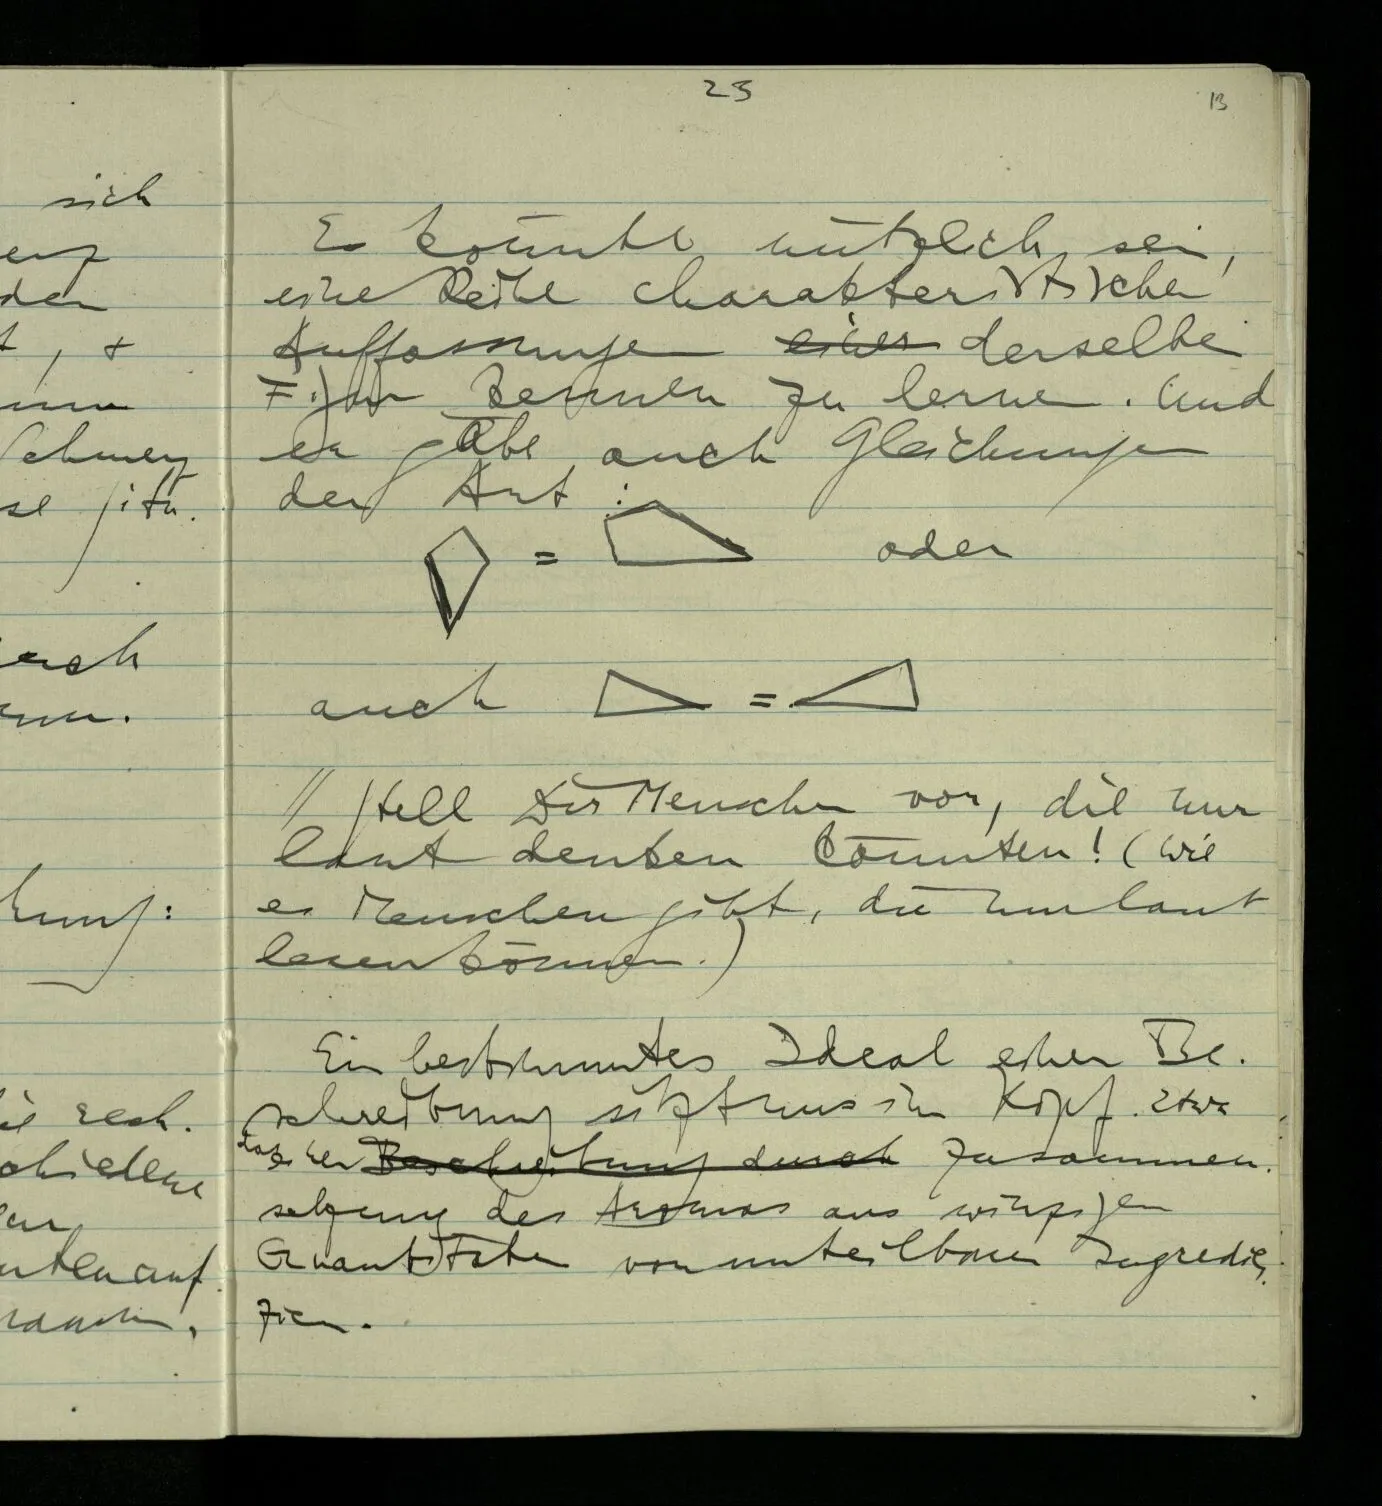 23
13
sich
den
t, +
Schmerz
se situ.
Es könnte nützlich sein,
eine Reihe charakteristischer
Auffassungen einer derselben
Figur kennen zu lernen. Und
es gäbe auch Gleichungen
der Art:
= oder
auch =
// Stell Dir Menschen vor, die nur
laut denken könnten! (Wie
es Menschen gibt, die nur laut
lesen können.)
Ein bestimmtes Ideal einer Be-
schreibung sitzt uns im Kopf. Etwa
das der Beschreibung durch Zusammen-
setzung des Aromas aus winzigen
Quantitäten von unteilbaren Ingredien-
zien.